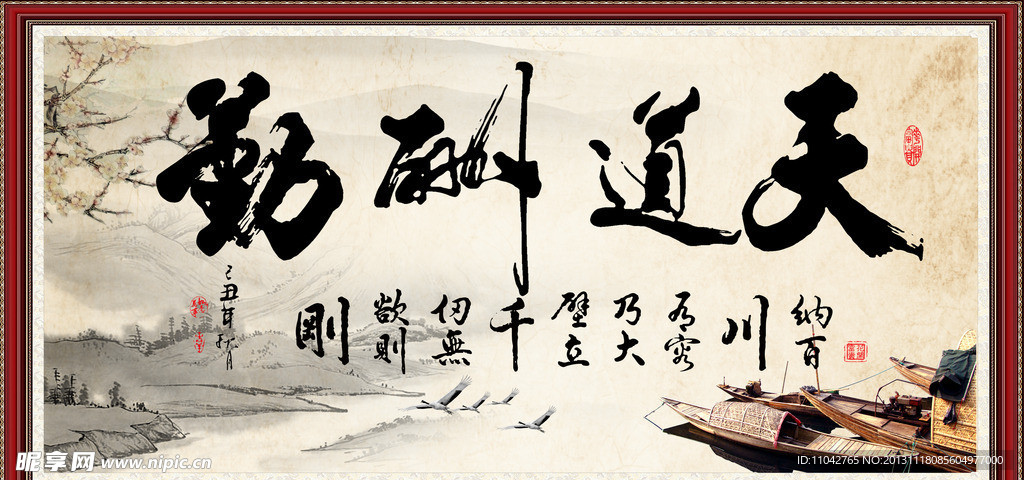 天道酬勤
納百川有容乃大壁立千仞無欲則剛
己丑年秋月
昵享网 www.nipic.cn
ID:11042765 NO:20131118085604977000